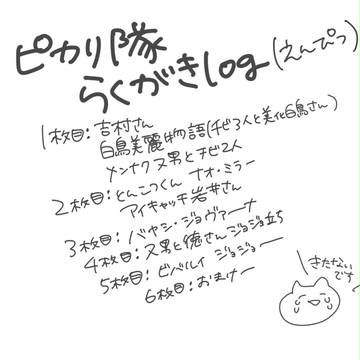 ピカリ隊
らくがきlog(えんぴつ)
1枚目:吉村さん
白鳥美麗物語(チビ3人と美化白鳥さん)
メンナク又男とチビ2人
2枚目:とんこつくん ナオ・ミラー
アイキャッチ岩井さん
3枚目:バヤシ・ジョヴァーナ
4枚目:又男と徳さんジョジョ立ち
5枚目:ビバルイ ジョジョー
6枚目:おまけー
きたない
です